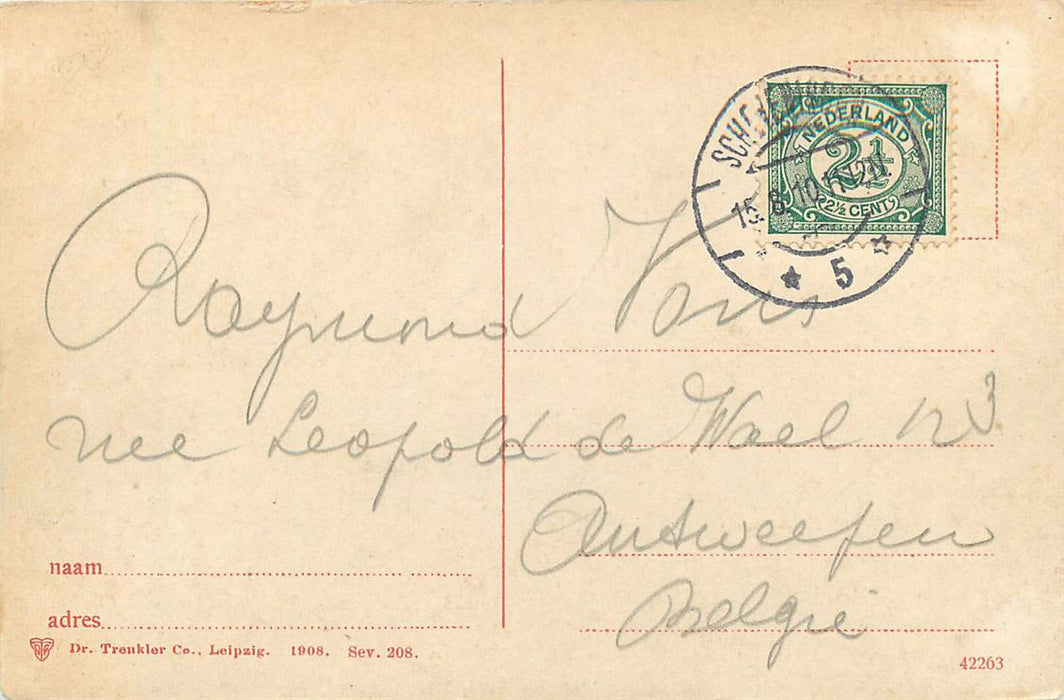 NEDERLAND
2½
2½ CENT
15.8.10.11-12V
5
Raymond
nee Leopold de Wael n 3
Antwerpen
België
naam
adres
Dr. Trenkler Co., Leipzig. 1908. Sev. 208.
42263